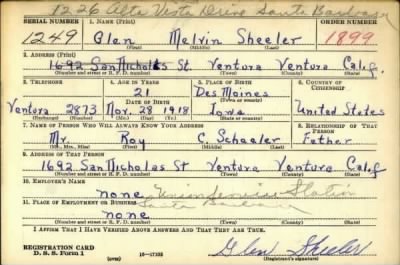 1226 Alta Vista Drive Santa Barbara
SERIAL NUMBER 1. NAME (Print) ORDER NUMBER
1249 Glen Melvin Sheeler 1899
(First) (Middle) (Last)
2. ADDRESS (Print)
1692 San Nicholas St. Ventura Ventura Calif.
(Number and street or R. F. D. number) (Town) (County) (State)
3. TELEPHONE 4. AGE IN YEARS 5. PLACE OF BIRTH 6. COUNTRY OF CITIZENSHIP
21 Des Moines
DATE OF BIRTH (Town or county)
Ventura 2873 Nov. 28 1918 Iowa United States
(Exchange) (Number) (Mo.) (Day) (Yr.) (State or country)
7. NAME OF PERSON WHO WILL ALWAYS KNOW YOUR ADDRESS 8. RELATIONSHIP OF THAT PERSON
Mr. Roy C. Scheeler Father
(Mr., Mrs., Miss) (First) (Middle) (Last)
9. ADDRESS OF THAT PERSON
1692 San Nicholas St Ventura Ventura Calif
(Number and street or R. F. D. number) (Town) (County) (State)
10. EMPLOYER'S NAME
none Union Service Station
11. PLACE OF EMPLOYMENT OR BUSINESS Santa Barbara
none
(Number and street or R. F. D. number) (Town) (County) (State)
I AFFIRM THAT I HAVE VERIFIED ABOVE ANSWERS AND THAT THEY ARE TRUE.
REGISTRATION CARD Glen Sheeler
D. S. S. Form 1 16—17105 (Registrant's signature)